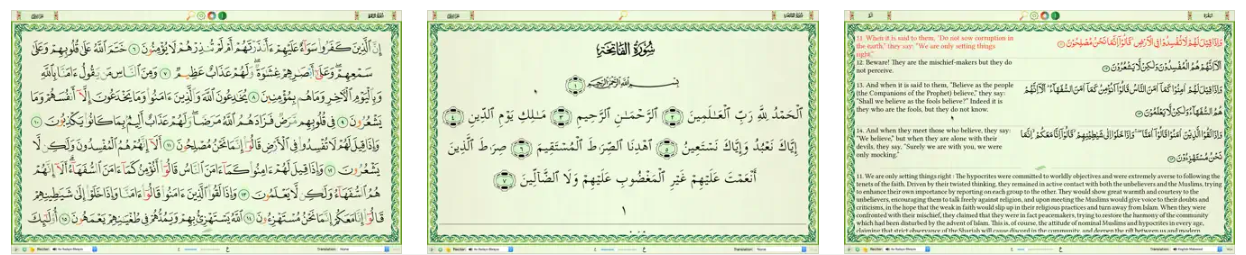 إِنَّ الَّذِينَ كَفَرُوا سَوَاءٌ عَلَيْهِمْ ءَأَنذَرْتَهُمْ أَمْ لَمْ تُنذِرْهُمْ لَا يُؤْمِنُونَ ٦ خَتَمَ اللَّهُ عَلَىٰ قُلُوبِهِمْ وَعَلَىٰ
سَمْعِهِمْ وَعَلَىٰ أَبْصَارِهِمْ غِشَاوَةٌ وَلَهُمْ عَذَابٌ عَظِيمٌ ٧ وَمِنَ النَّاسِ مَن يَقُولُ ءَامَنَّا بِاللَّهِ
وَبِالْيَوْمِ الْآخِرِ وَمَا هُم بِمُؤْمِنِينَ ٨ يُخَادِعُونَ اللَّهَ وَالَّذِينَ ءَامَنُوا وَمَا يَخْدَعُونَ إِلَّا أَنفُسَهُمْ وَمَا
يَشْعُرُونَ ٩ فِي قُلُوبِهِم مَّرَضٌ فَزَادَهُمُ اللَّهُ مَرَضًا وَلَهُمْ عَذَابٌ أَلِيمٌ بِمَا كَانُوا يَكْذِبُونَ ١٠
وَإِذَا قِيلَ لَهُمْ لَا تُفْسِدُوا فِي الْأَرْضِ قَالُوا إِنَّمَا نَحْنُ مُصْلِحُونَ ١١ أَلَا إِنَّهُمْ هُمُ الْمُفْسِدُونَ وَلَٰكِن لَّا
يَشْعُرُونَ ١٢ وَإِذَا قِيلَ لَهُمْ ءَامِنُوا كَمَا ءَامَنَ النَّاسُ قَالُوا أَنُؤْمِنُ كَمَا ءَامَنَ السُّفَهَاءُ أَلَا إِنَّهُمْ
هُمُ السُّفَهَاءُ وَلَٰكِن لَّا يَعْلَمُونَ ١٣ وَإِذَا لَقُوا الَّذِينَ ءَامَنُوا قَالُوا ءَامَنَّا وَإِذَا خَلَوْا إِلَىٰ شَيَاطِينِهِمْ
قَالُوا إِنَّا مَعَكُمْ إِنَّمَا نَحْنُ مُسْتَهْزِءُونَ ١٤ اللَّهُ يَسْتَهْزِئُ بِهِمْ وَيَمُدُّهُمْ فِي طُغْيَانِهِمْ يَعْمَهُونَ ١٥ أُولَٰئِكَ
سُورَةُ الْفَاتِحَةِ
بِسْمِ اللَّهِ الرَّحْمَٰنِ الرَّحِيمِ ١
الْحَمْدُ لِلَّهِ رَبِّ الْعَالَمِينَ ٢ الرَّحْمَٰنِ الرَّحِيمِ ٣ مَالِكِ يَوْمِ الدِّينِ ٤
إِيَّاكَ نَعْبُدُ وَإِيَّاكَ نَسْتَعِينُ ٥ اهْدِنَا الصِّرَاطَ الْمُسْتَقِيمَ ٦ صِرَاطَ الَّذِينَ
أَنْعَمْتَ عَلَيْهِمْ غَيْرِ الْمَغْضُوبِ عَلَيْهِمْ وَلَا الضَّالِّينَ ٧
١
11. When it is said to them, "Do not sow corruption in
the earth," they say: "We are only setting things
right."
وَإِذَا قِيلَ لَهُمْ لَا تُفْسِدُوا فِي الْأَرْضِ قَالُوا إِنَّمَا نَحْنُ مُصْلِحُونَ ١١
12. Beware! They are the mischief-makers but they do
not perceive.
أَلَا إِنَّهُمْ هُمُ الْمُفْسِدُونَ وَلَٰكِن لَّا يَشْعُرُونَ ١٢
13. And when it is said to them, "Believe as the people
(the Companions of the Prophet) believe," they say:
"Shall we believe as the fools believe?" Indeed it is
they who are the fools, but they do not know.
وَإِذَا قِيلَ لَهُمْ ءَامِنُوا كَمَا ءَامَنَ النَّاسُ قَالُوا أَنُؤْمِنُ كَمَا ءَامَنَ السُّفَهَاءُ أَلَا إِنَّهُمْ
هُمُ السُّفَهَاءُ وَلَٰكِن لَّا يَعْلَمُونَ ١٣
14. And when they meet those who believe, they say:
"We believe," but when they are alone with their
devils, they say, "Surely we are with you, we were
only mocking."
وَإِذَا لَقُوا الَّذِينَ ءَامَنُوا قَالُوا ءَامَنَّا وَإِذَا خَلَوْا إِلَىٰ شَيَاطِينِهِمْ قَالُوا إِنَّا مَعَكُمْ إِنَّمَا
نَحْنُ مُسْتَهْزِءُونَ ١٤
11. We are only setting things right : The hypocrites were committed to worldly objectives and were extremely averse to following the
tenets of the faith. Driven by their twisted thinking, they remained in active contact with both the unbelievers and the Muslims, trying
to enhance their own importance by reporting on each group to the other. They would show great warmth and courtesy to the
unbelievers, encouraging them to talk freely against religion, and upon meeting the Muslims would give voice to their doubts and
criticisms, in the hope that the weak in faith would slip up in their religious practices and turn away from Islam. When they were
confronted with their mischief, they claimed that they were in fact peacemakers, trying to restore the harmony of the community
which had been disturbed by the advent of Islam. This is, of course, the attitude of nominal Muslims and hypocrites in every age,